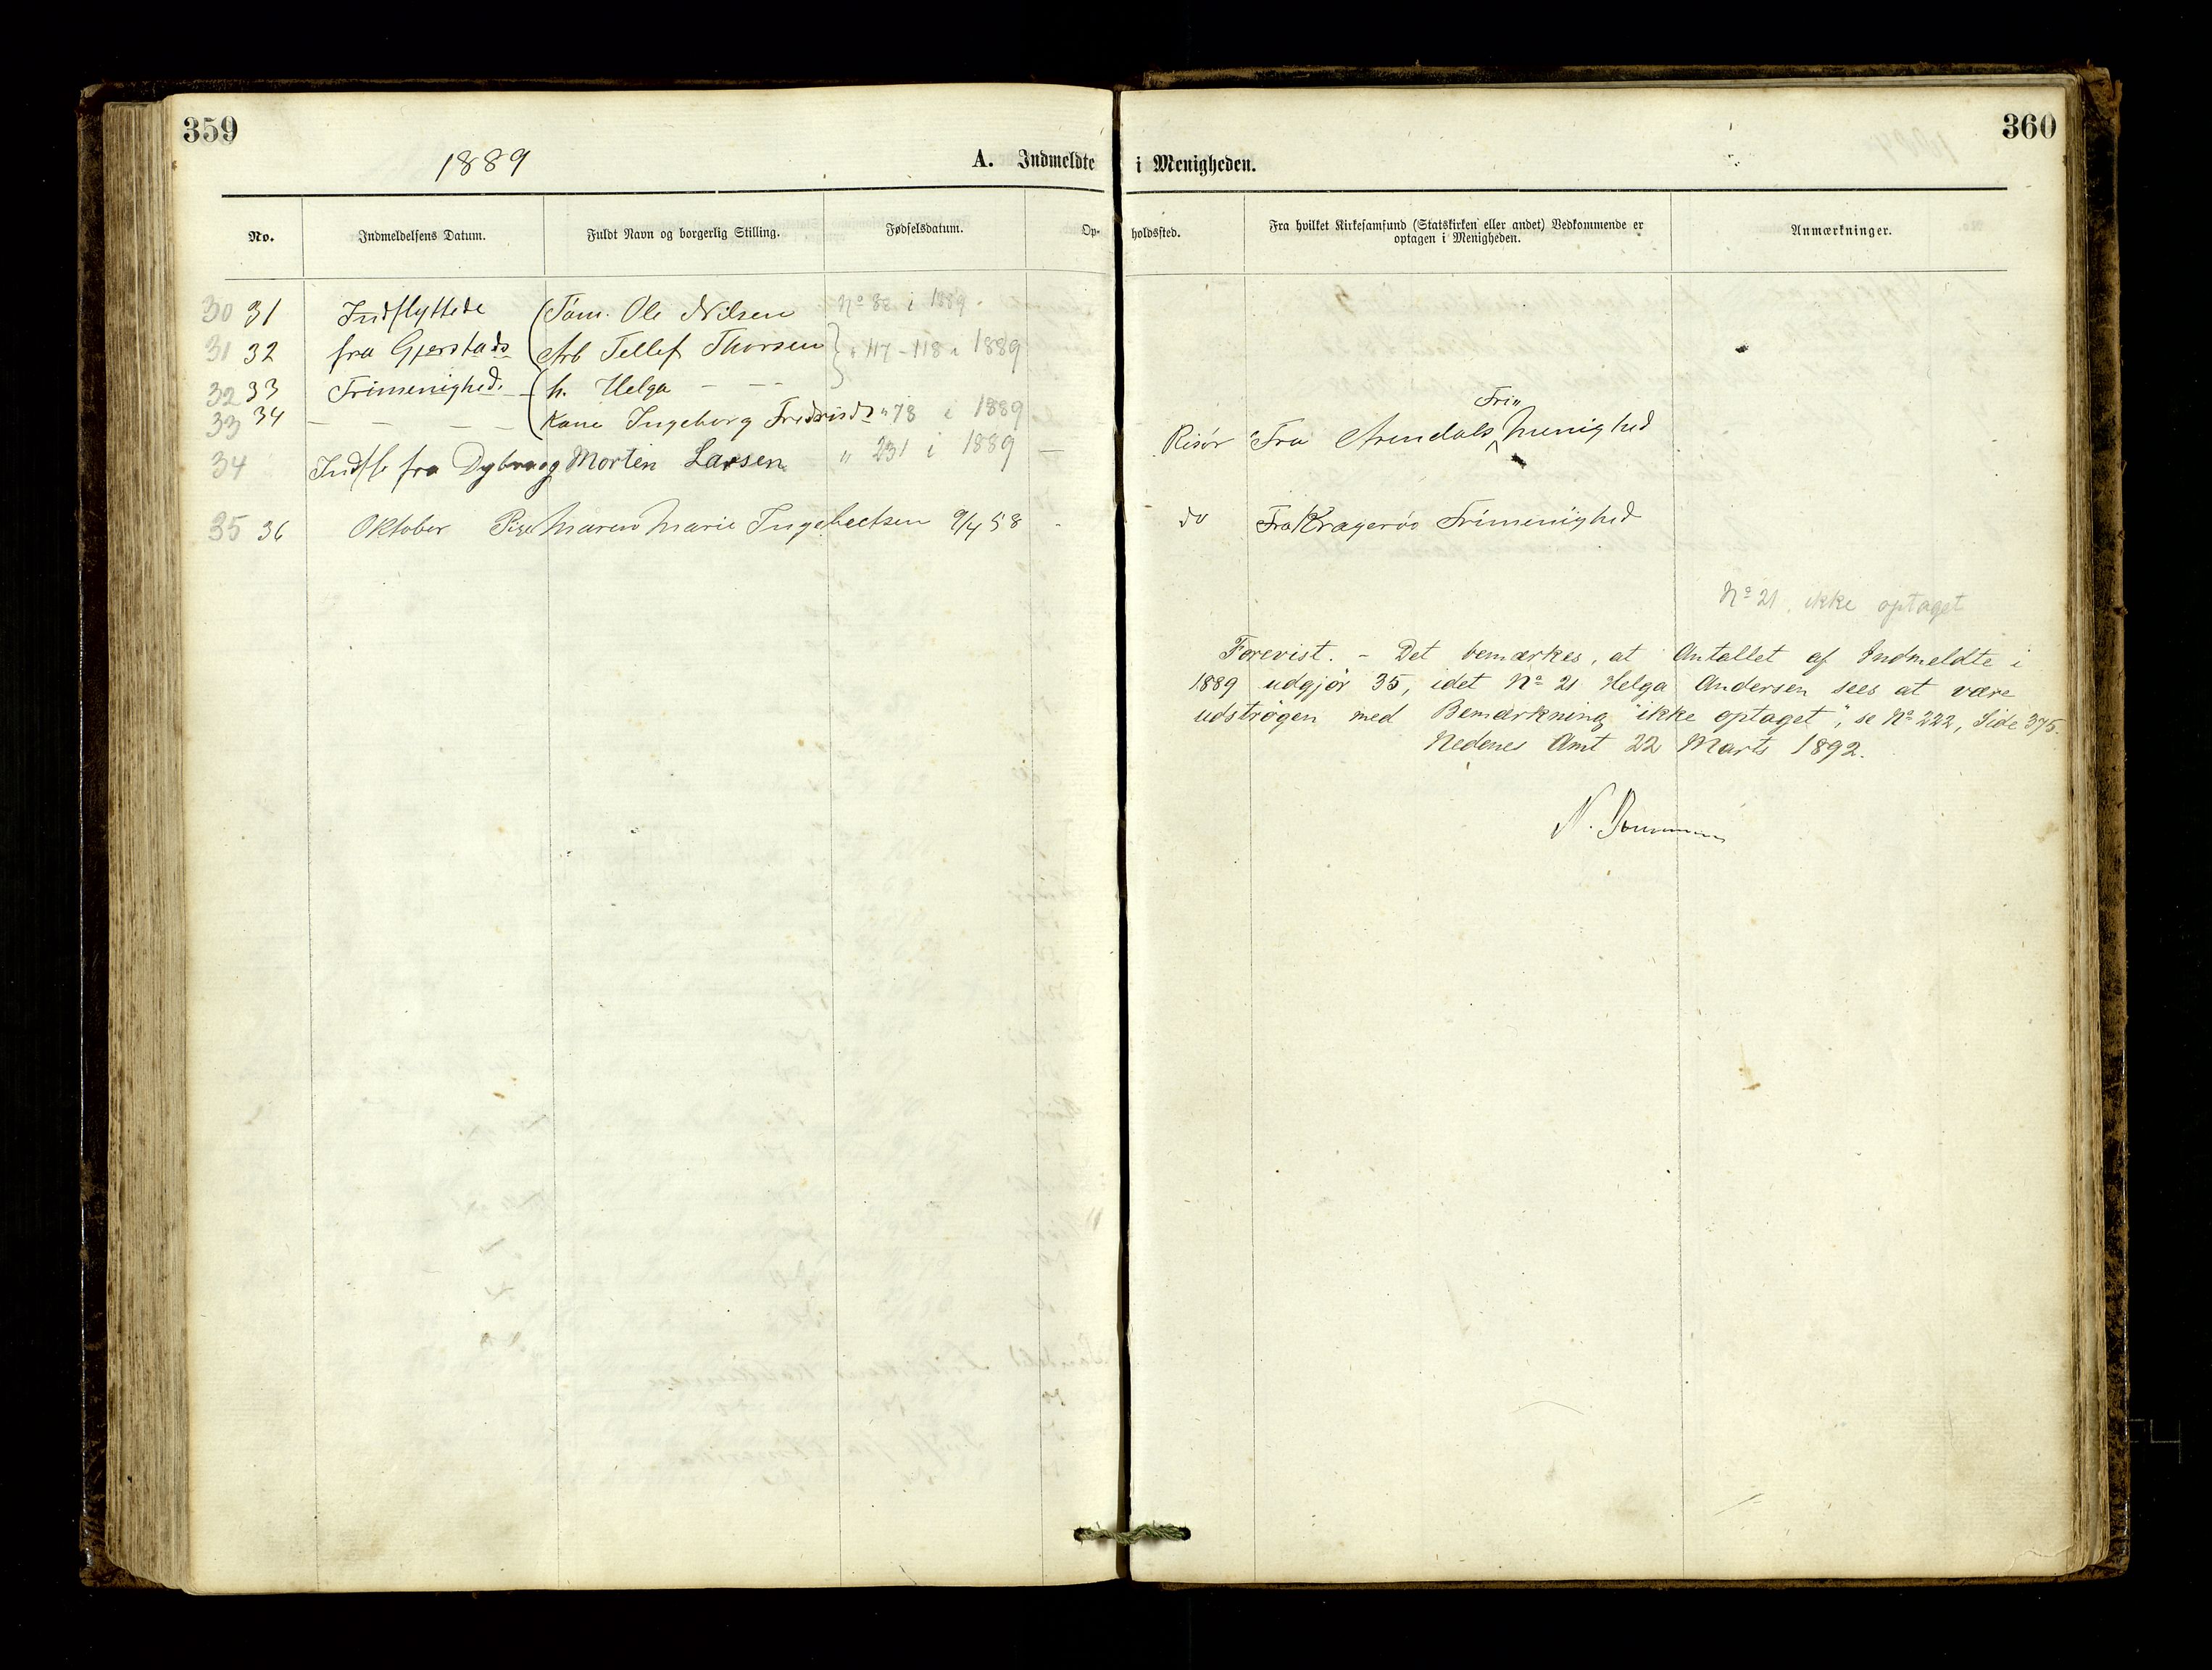 359
360
1889
A. Indmeldte i Menigheden.
No. Indmeldelsens Datum. Fuldt Navn og borgerlig Stilling. Fødselsdatum. Op- holdssted. Fra hvilket Kirkesamfund (Statskirken eller andet) Vedkommende er Anmærkninger.
optagen i Menigheden.
30 31 Indflyttede Tøm. Ole Nilsen No 82 i 1889.
31 32 fra Gjerstads Arb Tellef Thorsen " 117-118 i 1889
32 33 Frimenighed. - h. Helga - - -
33 34 - - - - Kone Ingeborg " 78 i 1889
Fri"
34 Indfl fra Dybvaag Morten Larsen " 231 i 1889 - Risør Fra Arendals Menighed
35 36 Oktober Pige Maren Marie Ingebretsen 9/4 58 - do Fra Kragerøs Frimenighed
No 21 ikke optaget
Forevist. - Det bemærkes, at Antallet af Indmeldte i
1889 udgjør 35, idet No 21 Helga Andersen sees at være
udstrøgen med Bemærkning "ikke optaget", se No 222, Side 375.
Nedenes Amt 22 Marts 1892.
N.